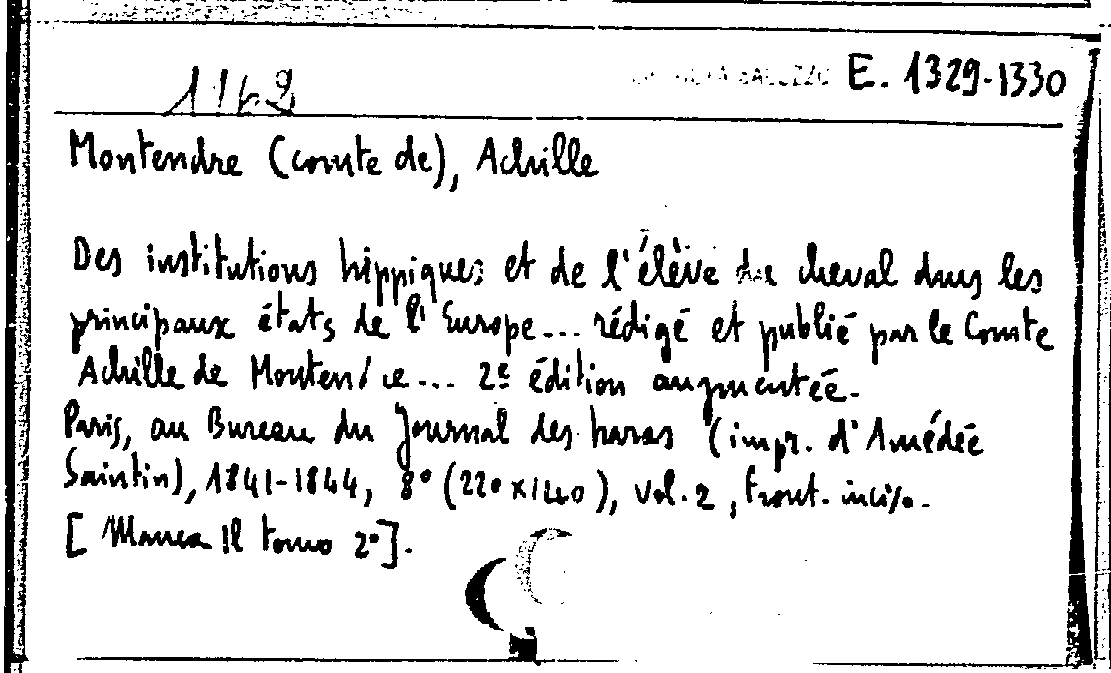 1162 E. 1329-1330
Montendre (comte de), Achille
Des institutions hippiques et de l'élève du cheval dans les
principaux états de l'Europe... rédigé et publié par le Comte
Achille de Montendre... 2e édition augmentée.
Paris, au Bureau du Journal des haras (impr. d'Amédée
Saintin), 1841-1844, 8° (220×140), vol. 2, front. incis.
[Manca il tomo 2°].